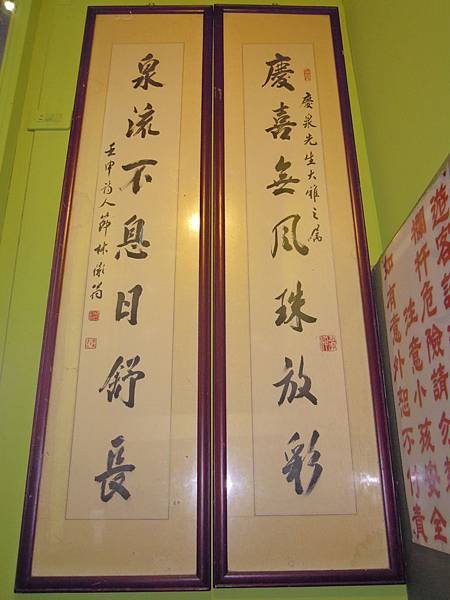 慶喜無風珠放彩
慶泉先生大雅之屬
泉流不息日舒長
壬申詩人節 林
遊客
欄杆危險請勿
注意小孩安全
如有意外恕不付責